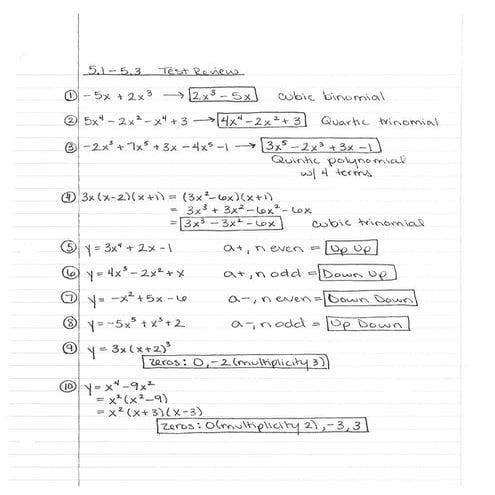 5.1-5.3 Test Review
① -5x + 2x³ → 2x³ - 5x cubic binomial
② 5x⁴ - 2x² - x⁴ + 3 → 4x⁴ - 2x² + 3 Quartic trinomial
③ -2x³ + 7x⁵ + 3x - 4x⁵ - 1 → 3x⁵ - 2x³ + 3x - 1
Quintic polynomial
w/ 4 terms
④ 3x(x-2)(x+1) = (3x² - 6x)(x+1)
= 3x³ + 3x² - 6x² - 6x
= 3x³ - 3x² - 6x cubic trinomial
⑤ y = 3x⁴ + 2x - 1 a+, n even = Up Up
⑥ y = 4x³ - 2x² + x a+, n odd = Down Up
⑦ y = -x² + 5x - 6 a-, n even = Down Down
⑧ y = -5x⁵ + x³ + 2 a-, n odd = Up Down
⑨ y = 3x(x+2)³
zeros: 0, -2 (multiplicity 3)
⑩ y = x⁴ - 9x²
= x²(x² - 9)
= x²(x+3)(x-3)
zeros: 0 (multiplicity 2), -3, 3